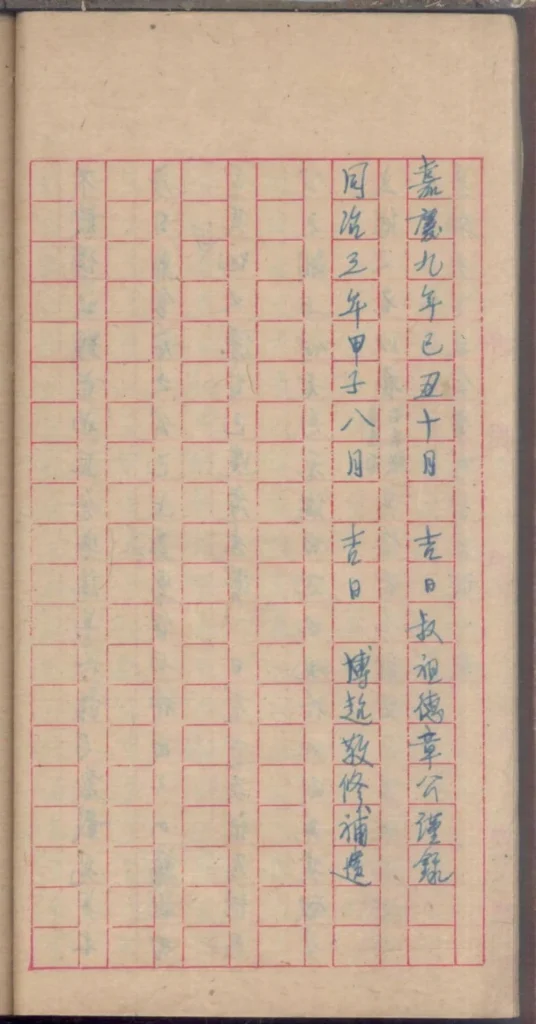 嘉慶九年己丑十月 吉日叔祖德章公謹錄
同治三年甲子八月 吉日 博起敬修補遺